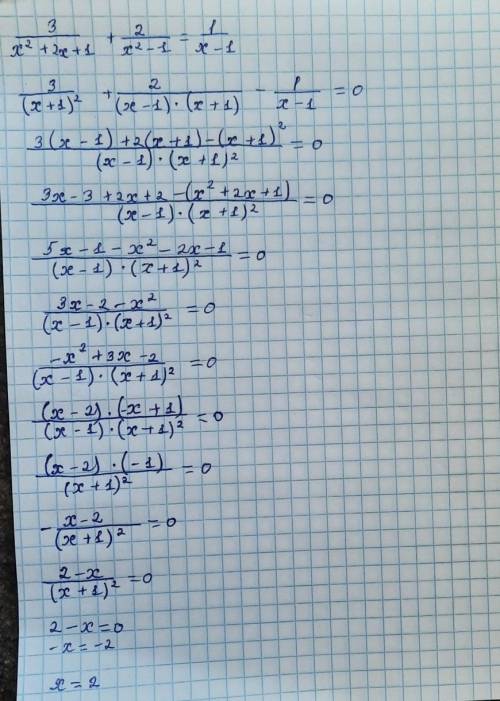 3/(x² + 2x + 1) + 2/(x² - 1) = 1/(x - 1)
3/(x + 1)² + 2/((x - 1) · (x + 1)) - 1/(x - 1) = 0
(3(x - 1) + 2(x + 1) - (x + 1)²)/((x - 1) · (x + 1)²) = 0
(3x - 3 + 2x + 2 - (x² + 2x + 1))/((x - 1) · (x + 1)²) = 0
(5x - 1 - x² - 2x - 1)/((x - 1) · (x + 1)²) = 0
(3x - 2 - x²)/((x - 1) · (x + 1)²) = 0
(-x² + 3x - 2)/((x - 1) · (x + 1)²) = 0
((x - 2) · (-x + 1))/((x - 1) · (x + 1)²) = 0
((x - 2) · (-1))/(x + 1)² = 0
- (x - 2)/(x + 1)² = 0
(2 - x)/(x + 1)² = 0
2 - x = 0
-x = -2
x = 2